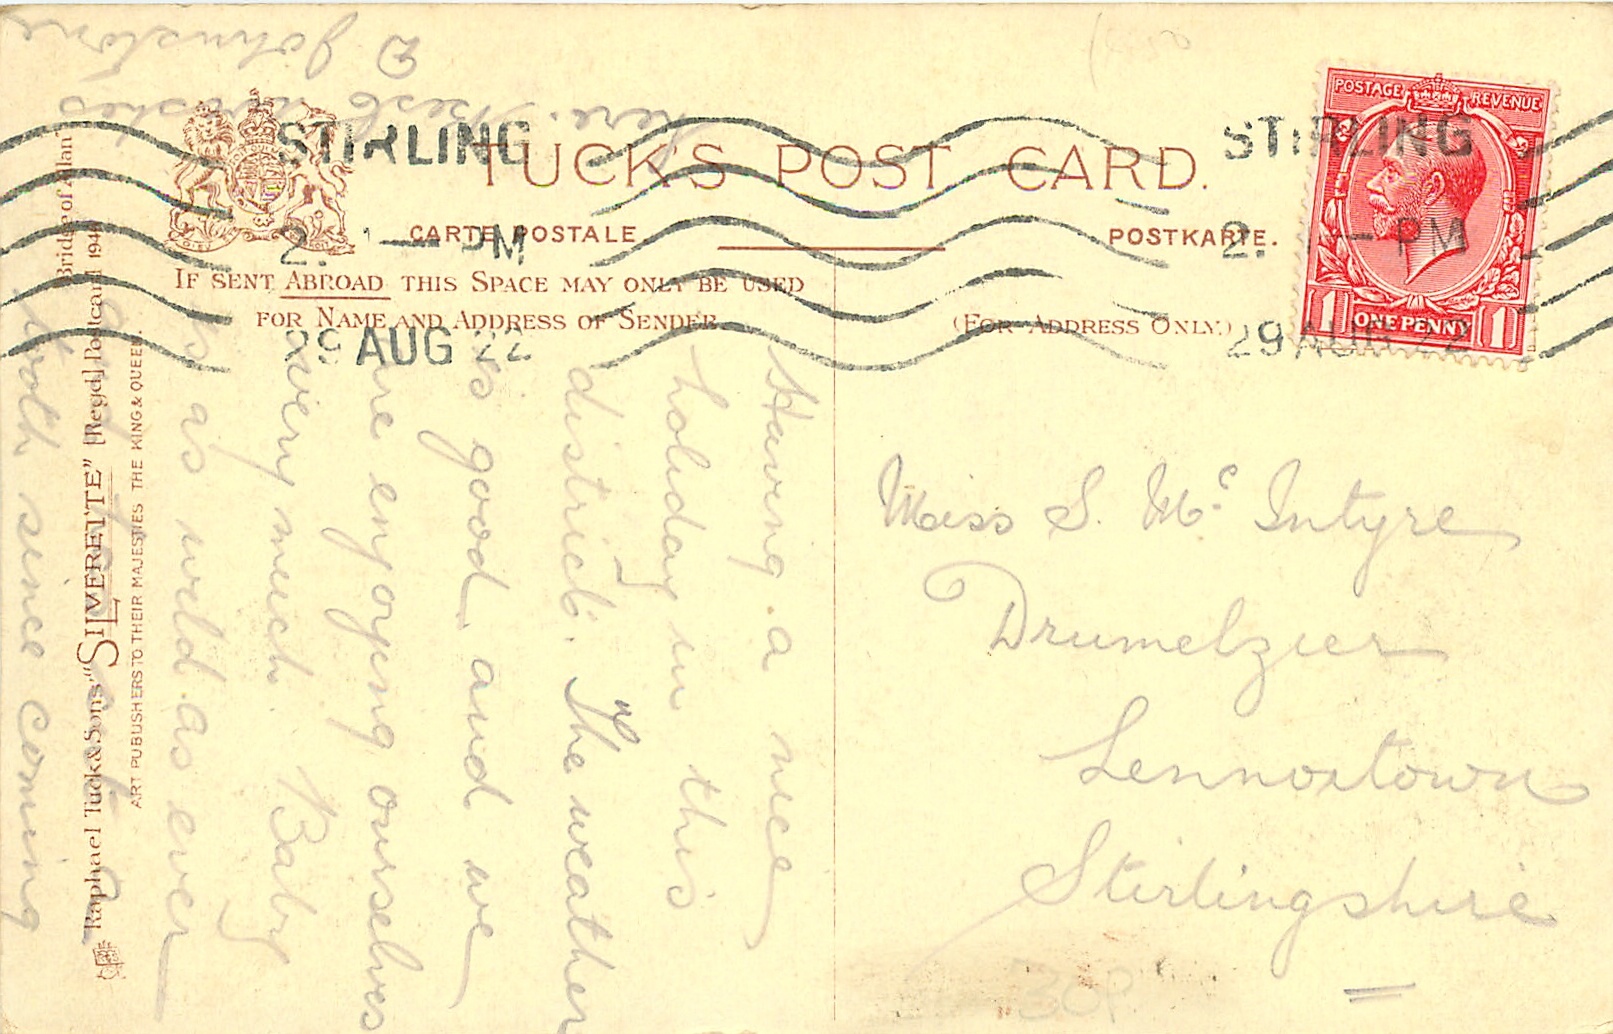 TUCK'S POST CARD.
CARTE POSTALE
POSTKARTE.
IF SENT ABROAD THIS SPACE MAY ONLY BE USED
FOR NAME AND ADDRESS OF SENDER.
(FOR ADDRESS ONLY.)
STIRLING
PM
29 AUG 22
STIRLING
PM
29 AUG 22
POSTAGE REVENUE
1 ONE PENNY 1
Having a nice
holiday in this
district. The weather
is good and we
are enjoying ourselves
very much. Baby
is as wild as ever
tooth since coming
here. Best wishes
D Johnstone
Miss S. Mc Intyre
Drumelzier
Lennoxtown
Stirlingshire
30P
Bridge of Allan
Raphael Tuck & Sons' "SILVERETTE" [Regd.] Postcard 194
ART PUBLISHERS TO THEIR MAJESTIES THE KING & QUEEN.